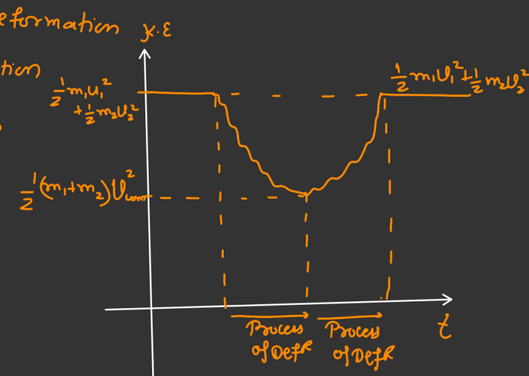 eformation
K.E
tion
½m₁u₁²
+½m₂u₂²
½m₁v₁²+½m₂v₂²
½(m₁+m₂)v²com
t
Process
of Defⁿ
Process
of Defⁿ